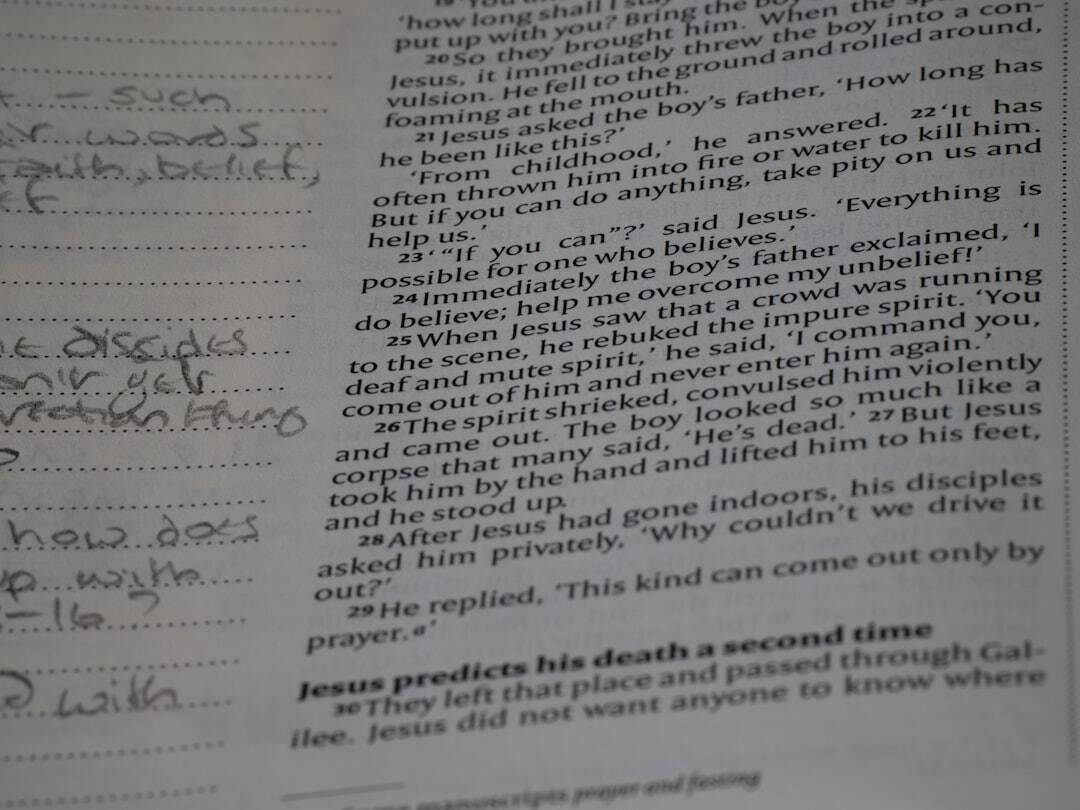 - such
words
faith, belief,
disciples
yet
thing
how does
up with
-16?
with
'how long shall I stay
put up with you? Bring the boy
20 So they brought him. When the
Jesus, it immediately threw the boy into a con-
vulsion. He fell to the ground and rolled around,
foaming at the mouth.
21 Jesus asked the boy's father, 'How long has
he been like this?'
'From childhood,' he answered. 22 'It has
often thrown him into fire or water to kill him.
But if you can do anything, take pity on us and
help us.'
23 '"If you can"?' said Jesus. 'Everything is
possible for one who believes.'
24 Immediately the boy's father exclaimed, 'I
do believe; help me overcome my unbelief!'
25 When Jesus saw that a crowd was running
to the scene, he rebuked the impure spirit. 'You
deaf and mute spirit,' he said, 'I command you,
come out of him and never enter him again.'
26 The spirit shrieked, convulsed him violently
and came out. The boy looked so much like a
corpse that many said, 'He's dead.' 27 But Jesus
took him by the hand and lifted him to his feet,
and he stood up.
28 After Jesus had gone indoors, his disciples
asked him privately, 'Why couldn't we drive it
out?'
29 He replied, 'This kind can come out only by
prayer.a'
Jesus predicts his death a second time
30 They left that place and passed through Gal-
ilee. Jesus did not want anyone to know where
manuscripts prayer and fasting